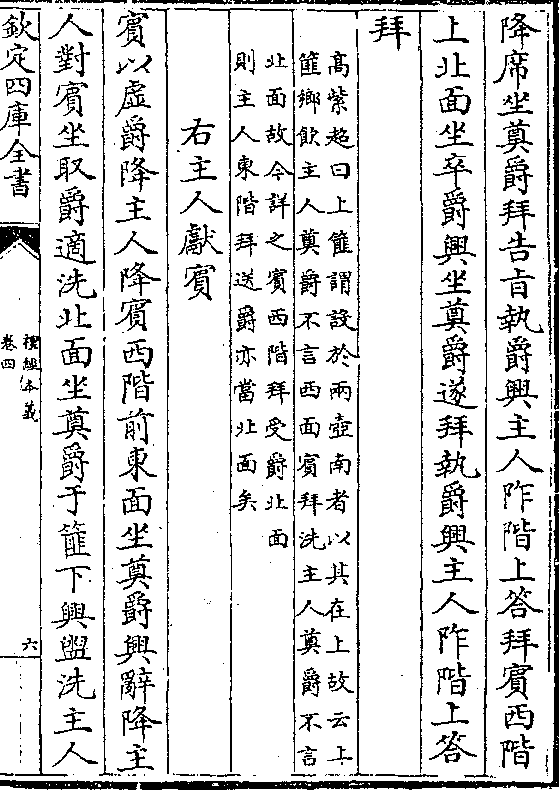 降席坐奠爵拜告旨執爵興主人阼階上答拜賓西階
上北面坐卒爵興坐奠爵遂拜執爵興主人阼階上答
拜
髙紫超曰上篚謂設於兩壺南者以其在上故云上
篚鄉飲主人奠爵不言西面賓拜洗主人奠爵不言
北面故今詳之賓西階拜受爵北面
則主人東階拜送爵亦當北面矣
右主人獻賓
賓以虛爵降主人降賓西階前東面坐奠爵興辭降主
人對賓坐取爵適洗北面坐奠爵于篚下興盥洗主人
欽定四庫全書
禮經本義
卷四
六